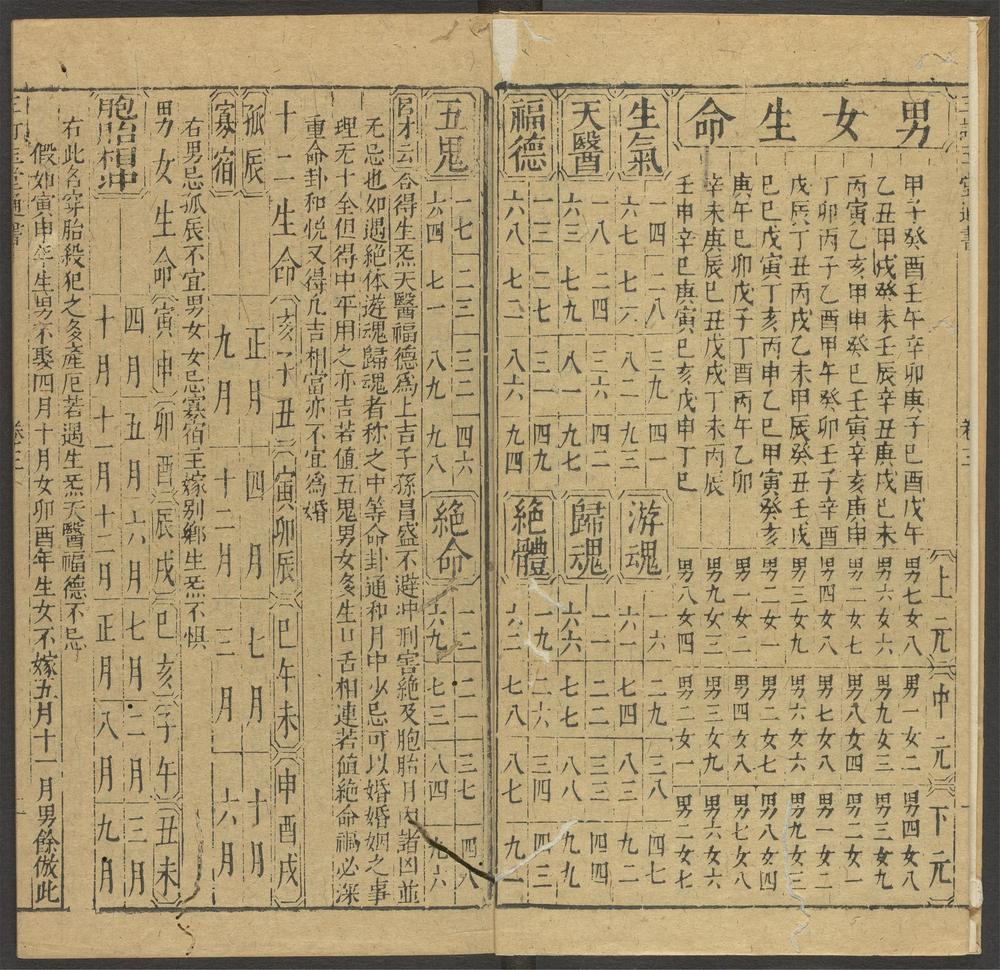 男女生命
上元
中元
下元
甲子癸酉壬午辛卯庚子己酉戊午
男七女八
男一女二
男四女八
乙丑甲戌癸未壬辰辛丑庚戌己未
男六女六
男九女三
男三女九
丙寅乙亥甲申癸巳壬寅辛亥庚申
男二女七
男八女四
男二女一
丁卯丙子乙酉甲午癸卯壬子辛酉
男四女八
男七女八
男一女二
戊辰丁丑丙戌乙未甲辰癸丑壬戌
男三女九
男六女六
男九女三
己巳戊寅丁亥丙申乙巳甲寅癸亥
男二女一
男二女七
男八女四
庚午己卯戊子丁酉丙午乙卯
男一女二
男四女八
男七女八
辛未庚辰己丑戊戌丁未丙辰
男九女三
男三女九
男六女六
壬申辛巳庚寅己亥戊申丁巳
男八女四
男二女一
男二女七
生氣
一四 二八 三九 四一
六七 七六 八二 九三
游魂
一六 二九 三八 四七
六一 七四 八三 九二
天醫
一八 二四 三六 四二
六三 七九 八一 九七
歸魂
一一 二二 三三 四四
六六 七七 八八 九九
福德
一三 二七 三一 四九
六八 七二 八六 九四
絶體
一九 二六 三四 四三
六二 七八 八七 九一
五鬼
一七 二三 三二 四六
六四 七一 八九 九八
絶命
一二 二一 三七 四八
六九 七三 八四 九六
呂才云合得生炁天醫福德爲上吉子孫昌盛不避冲刑害絶及胞胎月內諸凶並
无忌也如遇絶体遊魂歸魂者称之中等命卦通和月中少忌可以婚婚姻之事
理无十全但得中平用之亦吉若值五鬼男女多生口舌相連若值絶命禍必深
重命卦和悦又得几吉相富亦不宜爲婚
十二生命
亥子丑
寅卯辰
巳午未
申酉戌
孤辰
正月
四月
七月
十月
寡宿
九月
十二月
三月
六月
右男忌孤辰不宜男女女忌寡宿主嫁别鄉生炁不惧
男女生命
寅申
卯酉
辰戌
巳亥
子午
丑未
胞胎相冲
四月
五月
六月
七月
二月
三月
十月
十一月
十二月
正月
八月
九月
右此名穿胎殺犯之多產厄若遇生炁天醫福德不忌
假如寅申年生男不娶四月十月女卯酉年生女不嫁五月十一月男餘倣此